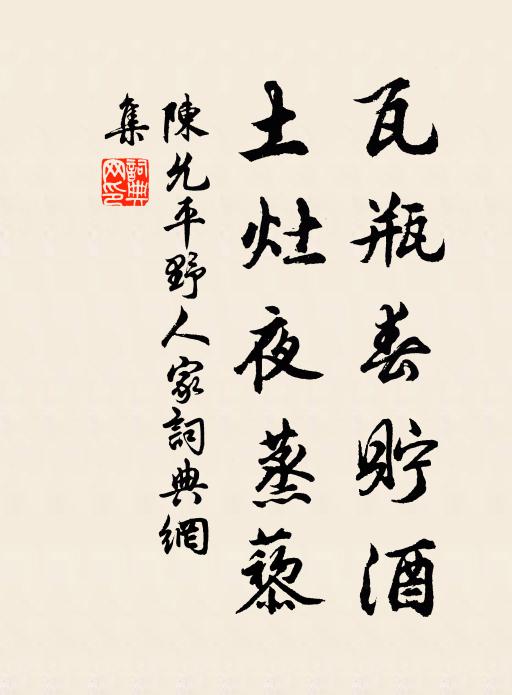 瓦瓶春貯酒
土灶夜蒸藜
陳允平野人家詞典網
集
詞典
网印